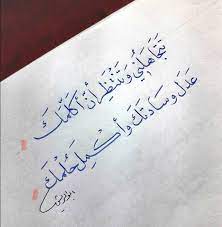 تتجاهلني وتنتظر أن أكلمك
عدل وسادتك وأكمل حلمك